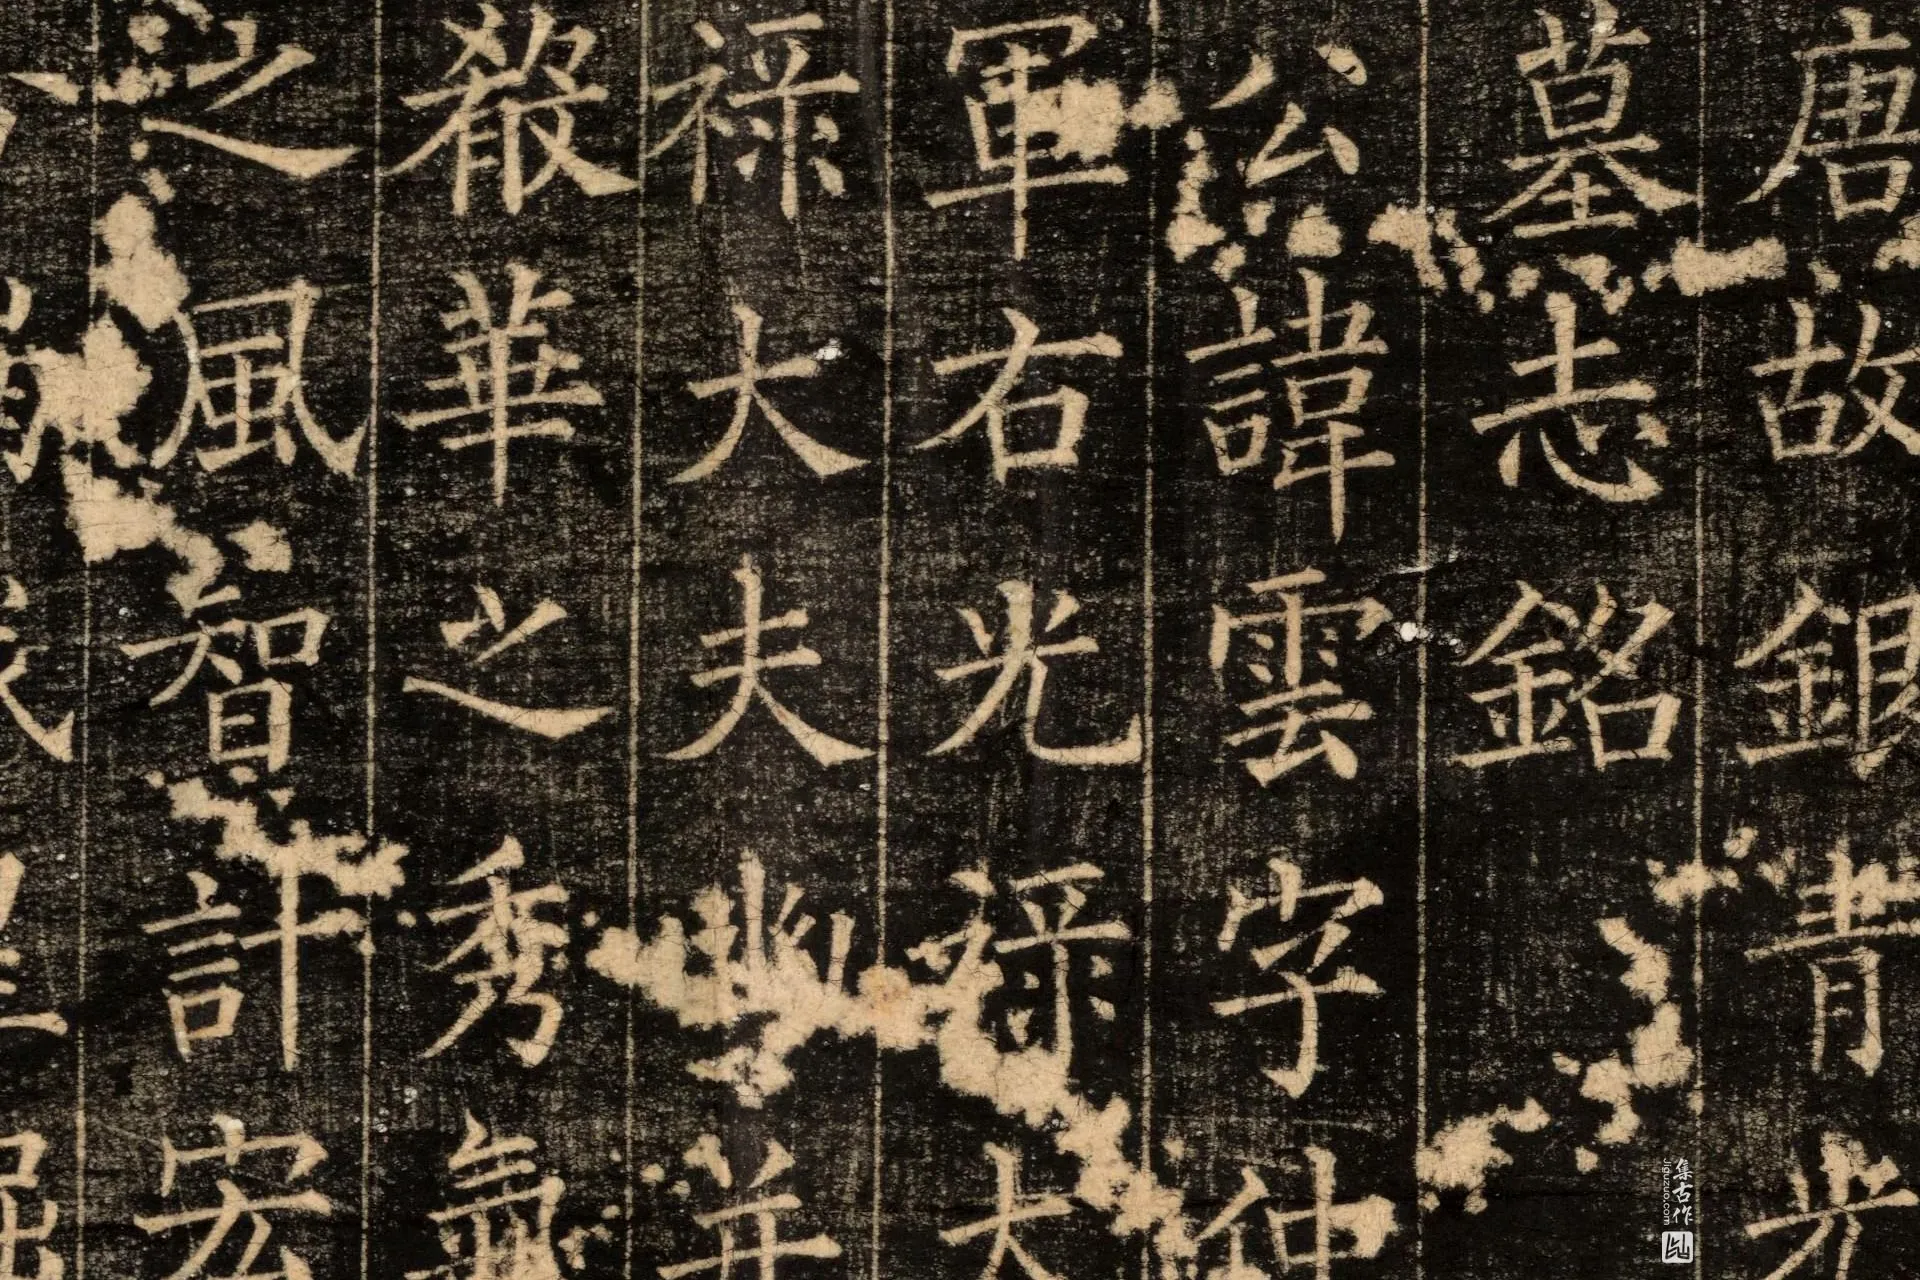 唐故銀青光
墓志銘
公諱雲字仲
軍右光祿大
祿大夫并
殽華之秀氣
之風智計宏
集古作
Jiguzuo.com